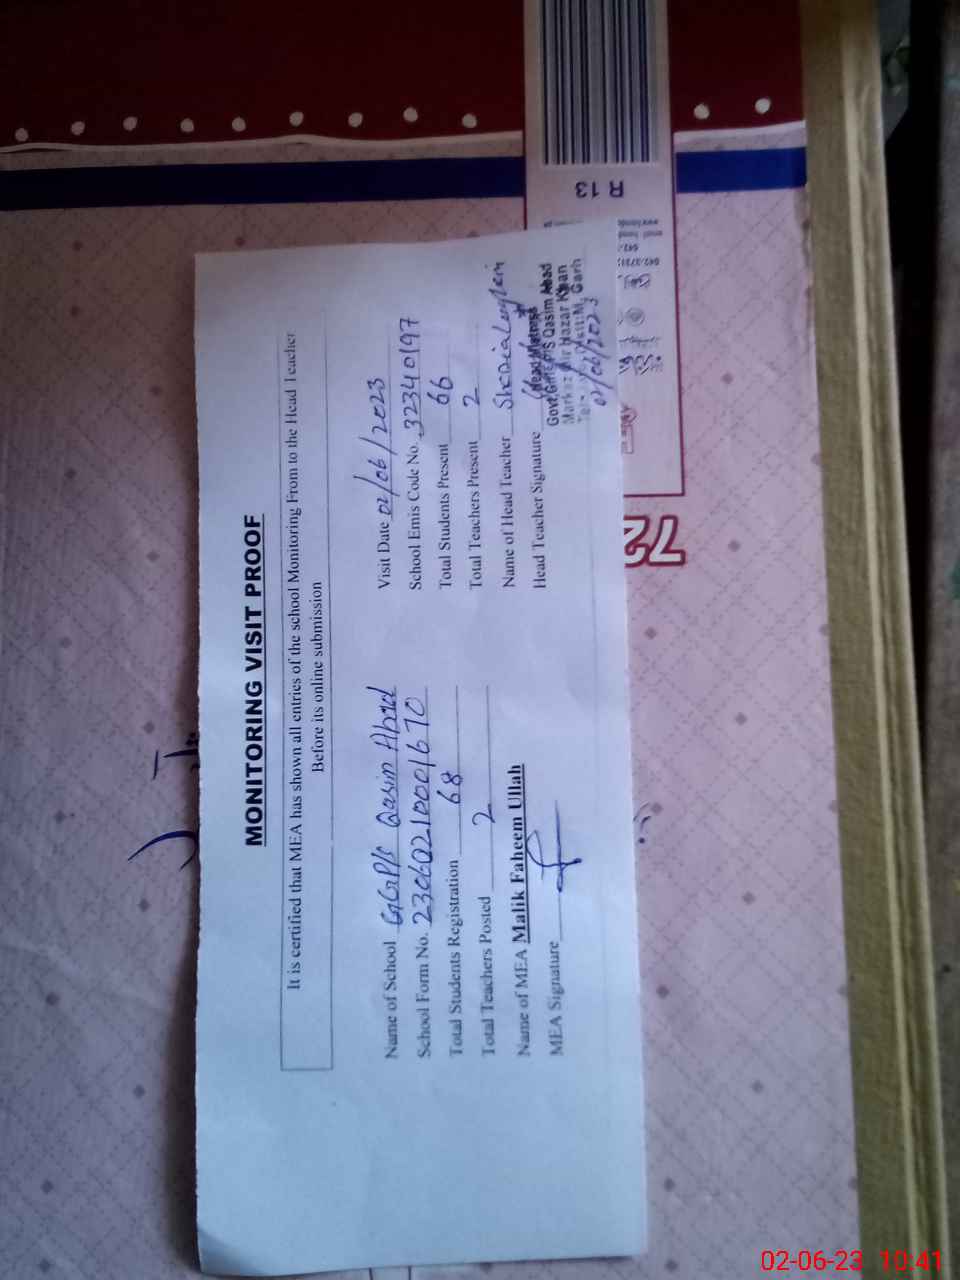 MONITORING VISIT PROOF
It is certified that MEA has shown all entries of the school Monitoring From to the Head Teacher
Before its online submission
Name of School GGP/S Qasim Abad
Visit Date 02/06/2023
School Form No. 23060210001670
School Emis Code No. 32340197
Total Students Registration 68
Total Students Present 66
Total Teachers Posted 2
Total Teachers Present 2
Name of MEA Malik Faheem Ullah
Name of Head Teacher
MEA Signature
Head Teacher Signature
Head Mistress
Govt. Girls P/S Qasim Abad
Markaz Mir Hazar Khan
Distt: M. Garh
02/06/2023
R 13
72
02-06-23 10:41